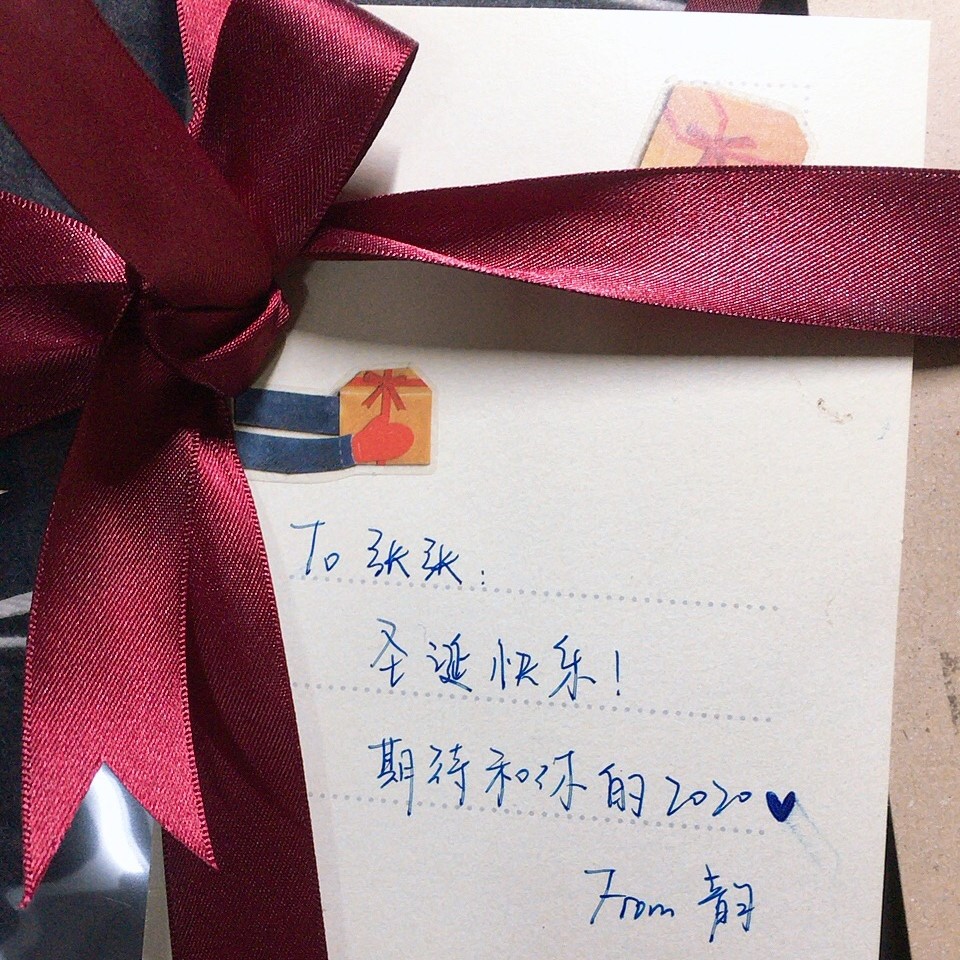 To 张张:
圣诞快乐!
期待和你的2020♥
From